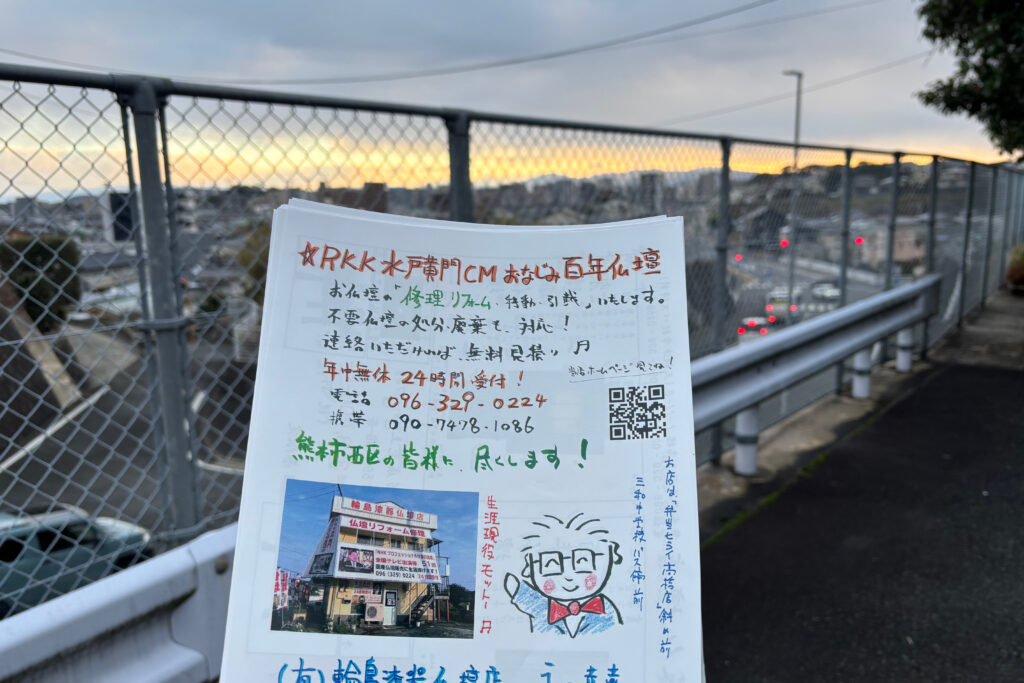 ☆RKK水戸黄門CMおなじみ百年仏壇
お仏壇の「修理リフォーム・移動・引越」いたします。
不要仏壇の処分・廃棄も、対応!
連絡いただければ、無料見積り
年中無休 24時間受付!
電話 096-329-0224
携帯 090-7478-1086
当店ホームページ見てね!
熊本市西区の皆様に、尽くします!
輪島漆器仏壇店
仏壇リフォーム修理
096(329)0224
生涯現役モットー
お店は「弁当ヒライ高橋店」斜め前
三和中学校バス停前
(有)輪島漆器仏壇店